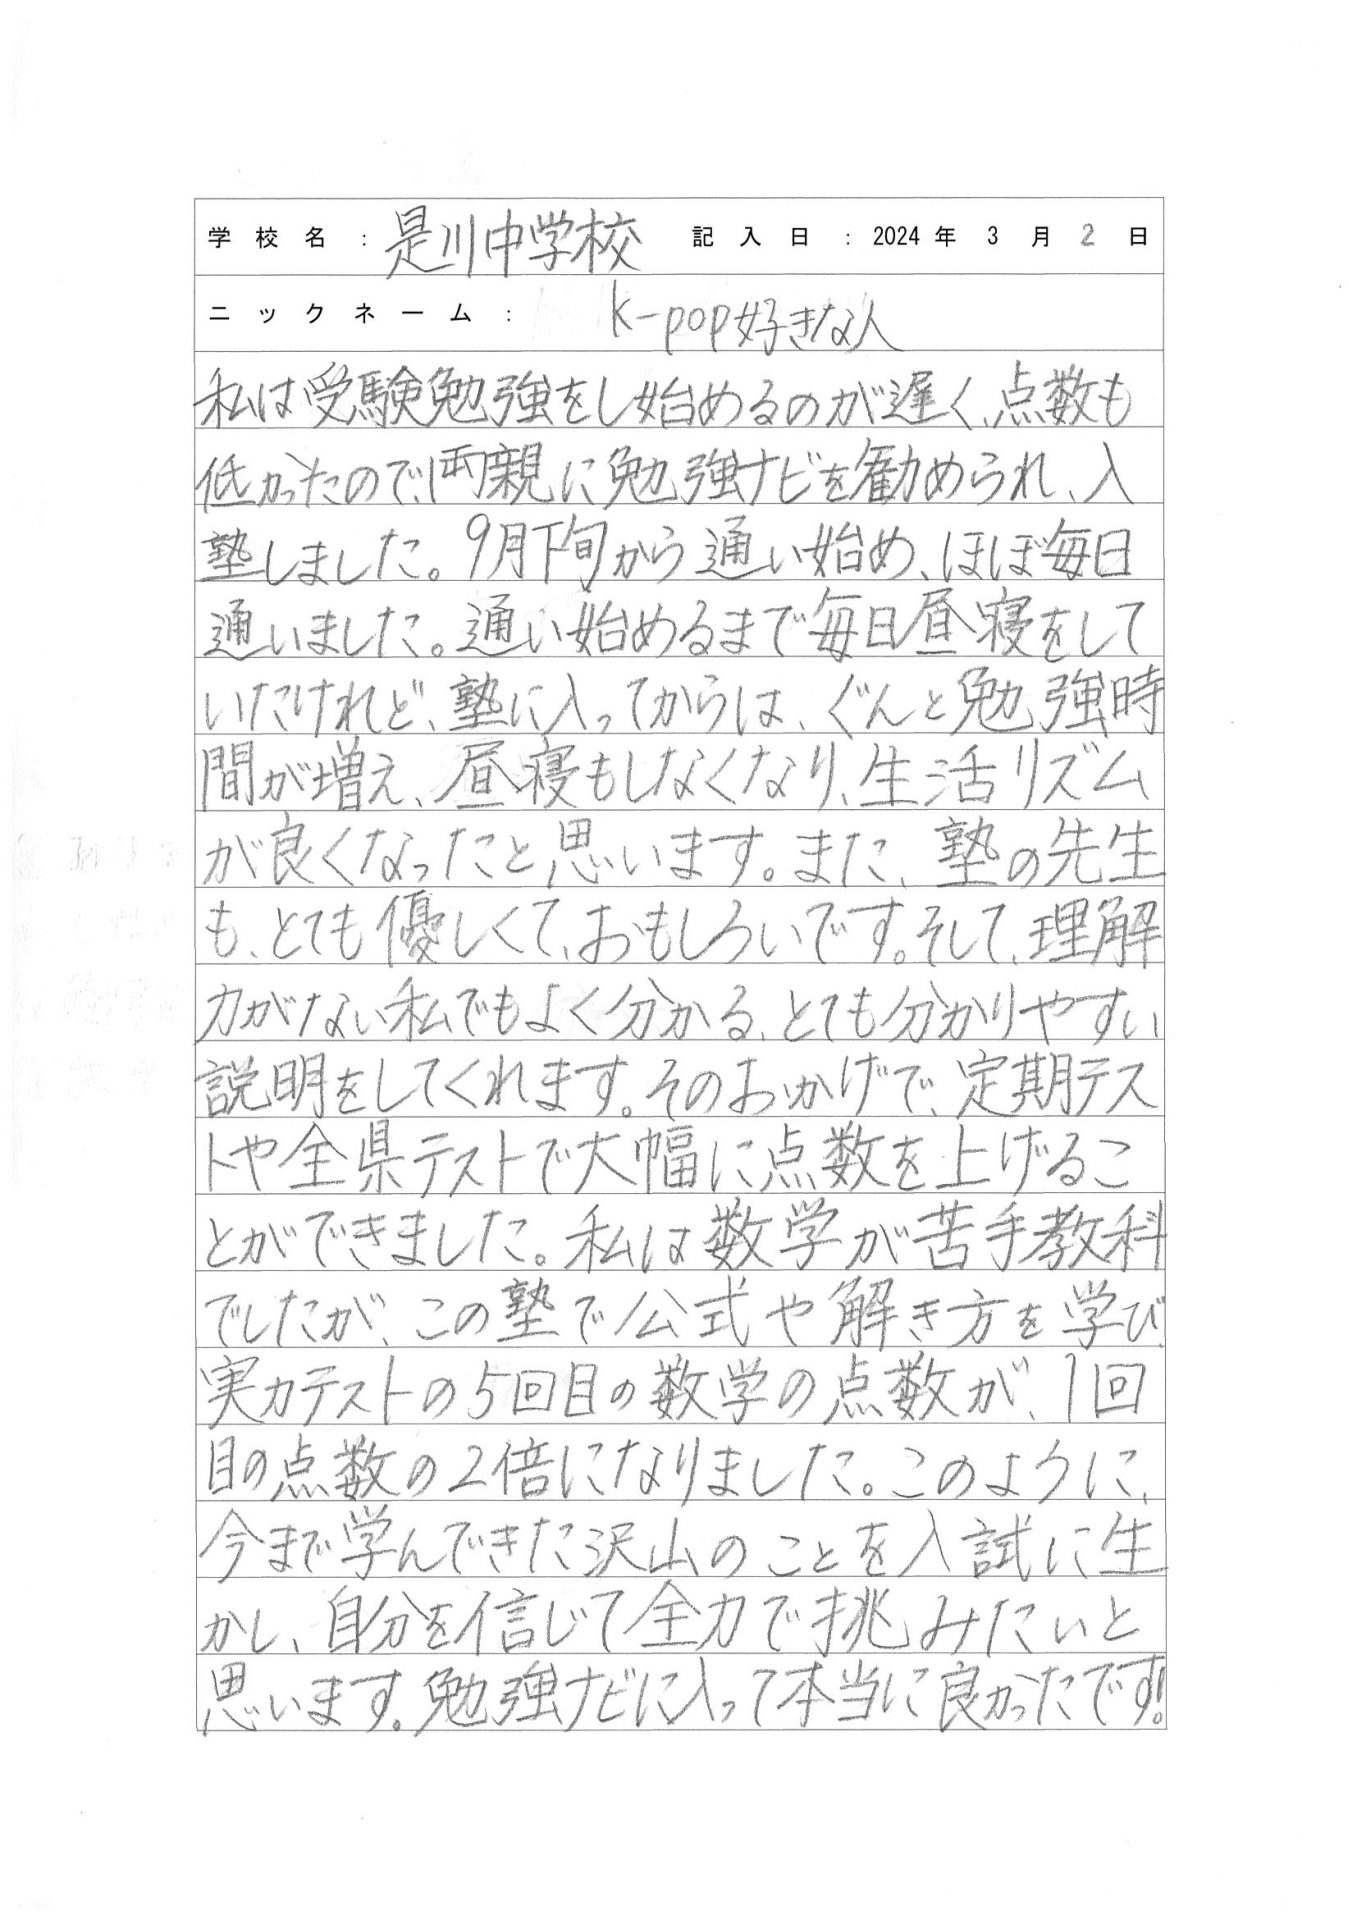 学校名：是川中学校 記入日：2024年3月2日
ニックネーム：K-pop好きな人
私は受験勉強をし始めるのが遅く、点数も
低かったので、両親に勉強ナビを勧められ、入
塾しました。9月下旬から通い始め、ほぼ毎日
通いました。通い始めるまで毎日昼寝をして
いたけれど、塾に入ってからは、ぐんと勉強時
間が増え、昼寝もしなくなり、生活リズム
が良くなったと思います。また、塾の先生
も、とても優しくて、おもしろいです。そして、理解
力がない私でもよく分かる、とても分かりやすい
説明をしてくれます。そのおかげで、定期テス
トや全県テストで大幅に点数を上げるこ
とができました。私は数学が苦手教科
でしたが、この塾で公式や解き方を学び、
実力テストの5回目の数学の点数が、1回
目の点数の2倍になりました。このように、
今まで学んできた沢山のことを入試に生
かし、自分を信じて全力で挑みたいと
思います。勉強ナビに入って本当に良かったです!